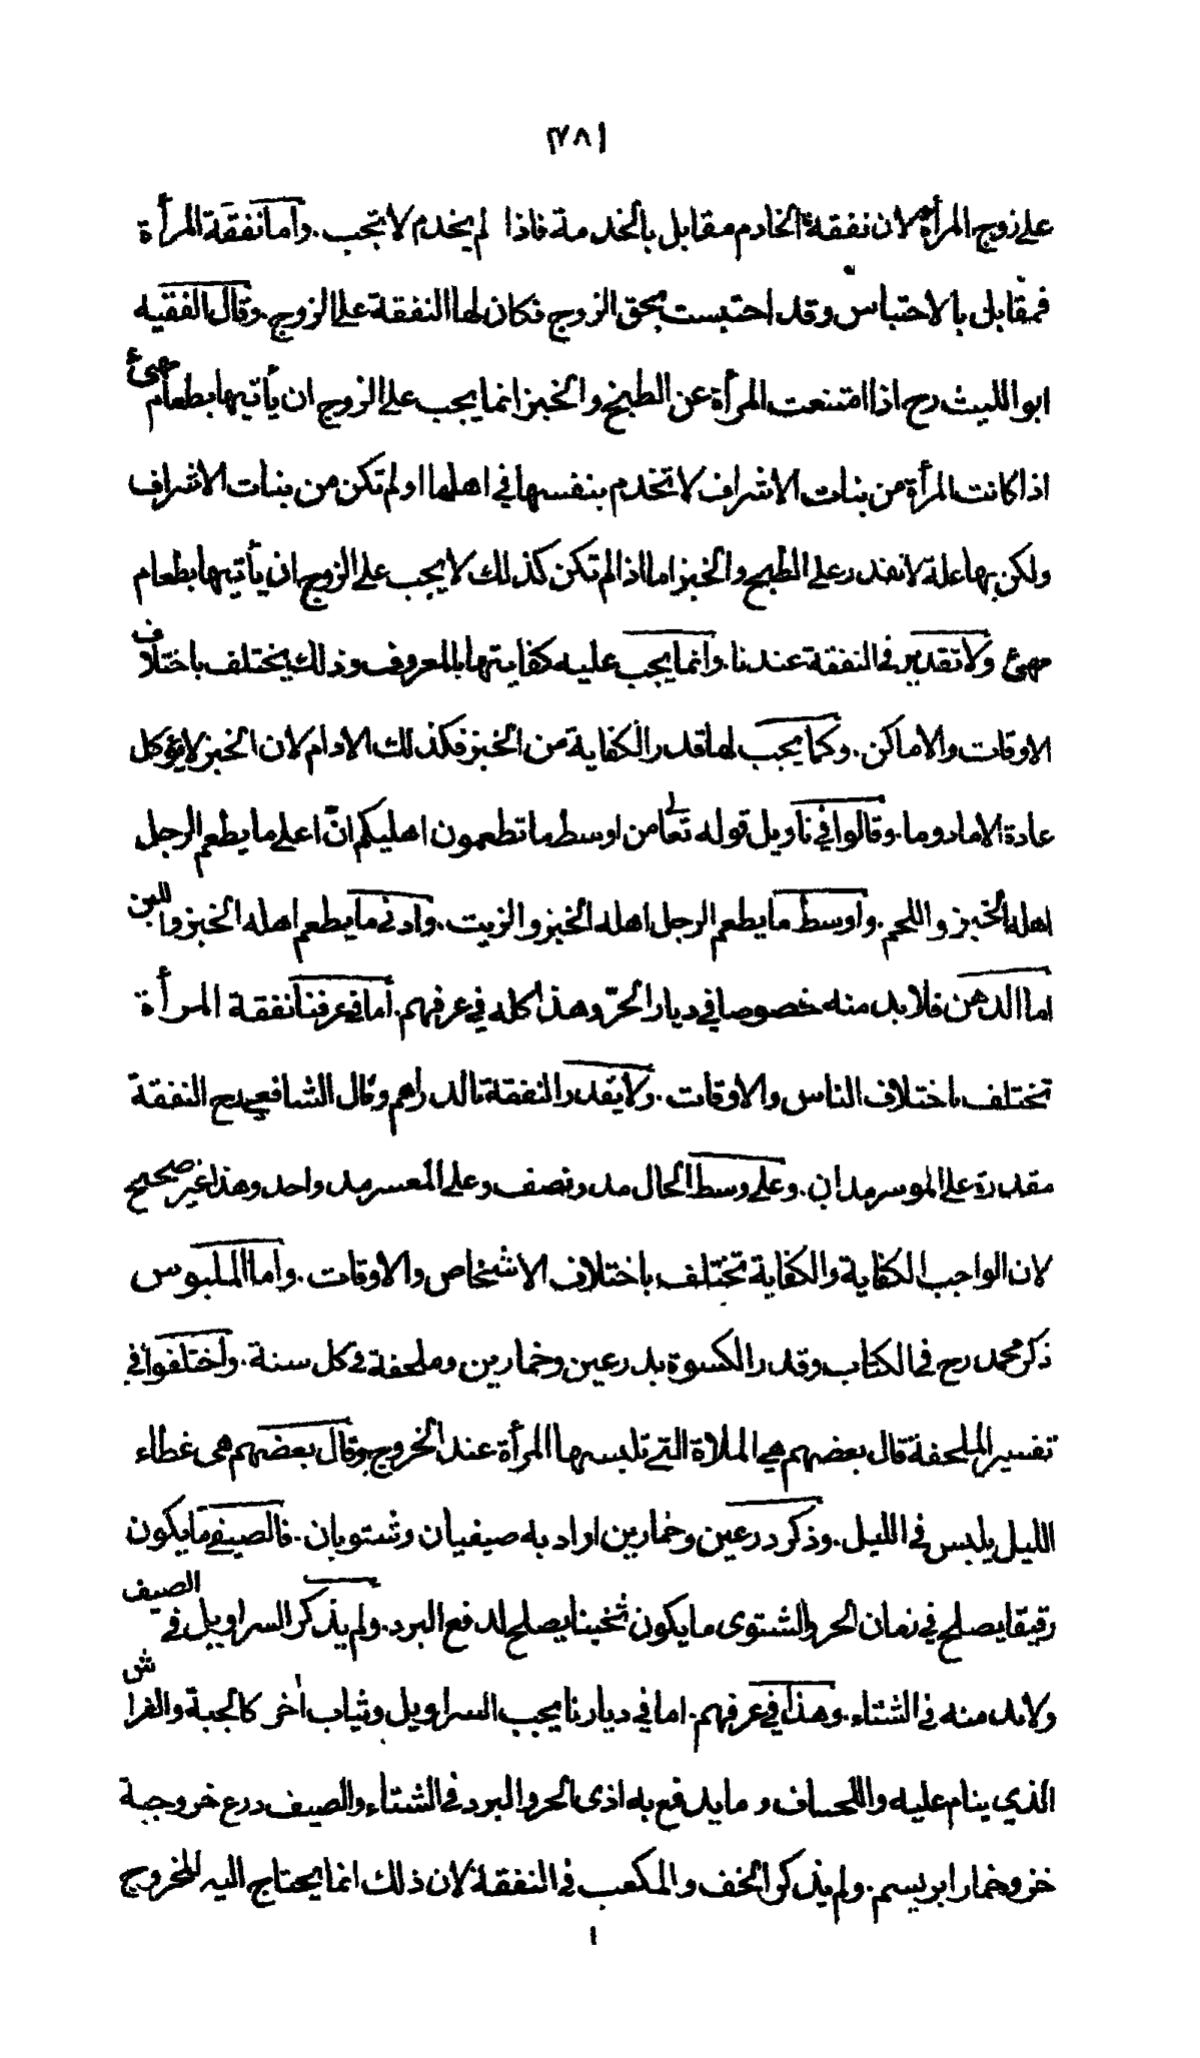 ٢٧٨
على زوج المرأة لان نفقة الخادم مقابل بالخدمة فاذا لم يخدم لا تجب. واما نفقة المرأة
فمقابل بالاحتباس وقد احتبست بحق الزوج فكان لها النفقة على الزوج. وقال الفقيه
ابو الليث رح اذا امتنعت المرأة عن الطبخ والخبز انما يجب على الزوج ان يأتيها بطعام مهيئ
اذا كانت المرأة من بنات الاشراف لا تخدم بنفسها في اهلها او لم تكن من بنات الاشراف
ولكن بها علة لا تقدر على الطبخ والخبز اما اذا لم تكن كذلك لا يجب على الزوج ان يأتيها بطعام
مهيئ ولا تقدير في النفقة عندنا. وانما يجب عليه كفايتها بالمعروف وذلك يختلف باختلاف
الاوقات والاماكن. وكما يجب لها قدر الكفاية من الخبز فكذلك الادام لان الخبز لا يؤكل
عادة الا مادوما. وقالوا في تاويل قوله تعا من اوسط ما تطعمون اهليكم انّ اعلى ما يطعم الرجل
اهله الخبز واللحم. واوسط ما يطعم الرجل اهله الخبز والزيت. وادنى ما يطعم اهله الخبز واللبن
اما الدهن فلا بد منه خصوصا في ديار الحرّ وهذا كله في عرفهم. اما في عرفنا نفقة المرأة
تختلف باختلاف الناس والاوقات. ولا يقدر النفقة بالدراهم وقال الشافعي رح النفقة
مقدرة على الموسر مدان. وعلى وسط الحال مد ونصف وعلى المعسر مد واحد وهذا غير صحيح
لان الواجب الكفاية والكفاية تختلف باختلاف الاشخاص والاوقات. واما الملبوس
ذكر محمد رح في الكتاب وقدر الكسوة بدرعين وخمارين وملحفة في كل سنة. واختلفوا في
تفسير الملحفة قال بعضهم هي الملاة التي تلبسها المرأة عند الخروج وقال بعضهم هى غطاء
الليل يلبس في الليل. وذكر درعين وخمارين اراد به صيفيان وشتويان. فالصيفي ما يكون
رقيقا يصلح في زمان الحر والشتوى ما يكون ثخينا يصلح لدفع البرد. ولم يذكر السراويل في الصيف
ولا بد منه في الشتاء. وهذا في عرفهم. اما في ديارنا يجب السراويل وثياب اخر كالجبة والفراش
الذي ينام عليه واللحاف وما يدفع به اذى الحر والبرد في الشتاء والصيف درع خز وجبة
خز وخمار ابريسم. ولم يذكر الخف والمكعب في النفقة لان ذلك انما يحتاج اليه للخروج